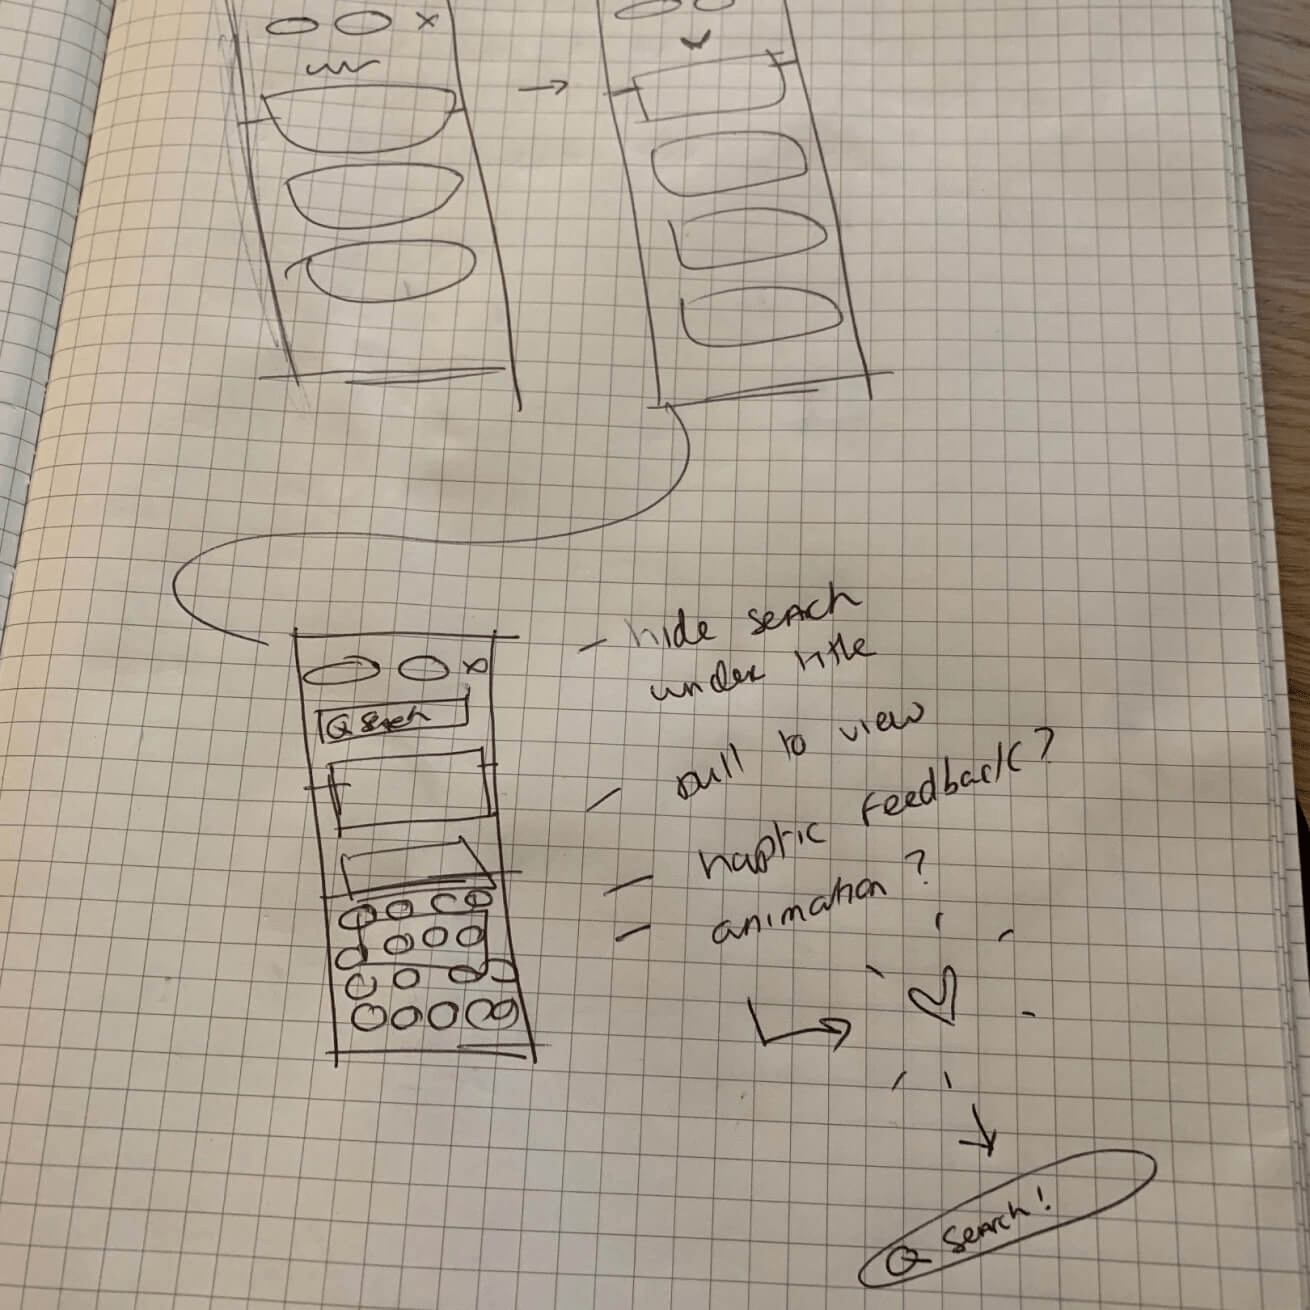 Search
- hide search
under title
- pull to view
- haptic feedback?
- animation?
Search!